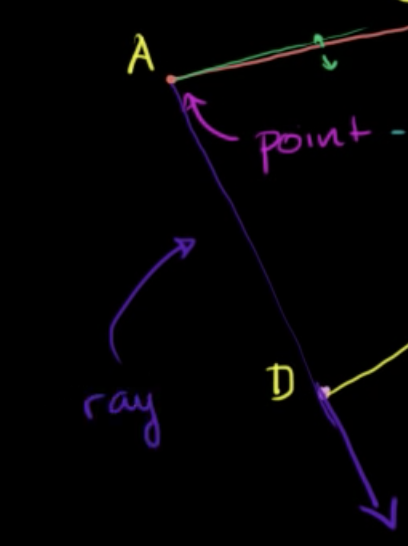 A
point
D
ray